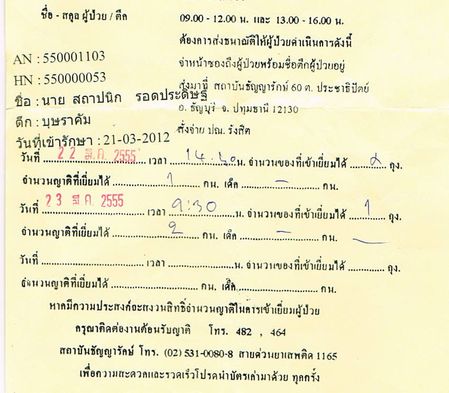 ชื่อ - สกุล ผู้ป่วย / ตึก
09.00 - 12.00 น. และ 13.00 - 16.00 น.
ต้องการส่งธนาณัติให้ผู้ป่วยดำเนินการดังนี้
AN : 550001103
จ่าหน้าซองถึงผู้ป่วยพร้อมชื่อตึกผู้ป่วยอยู่
HN : 550000053
ส่งมาที่ สถาบันธัญญารักษ์ 60 ถ. ประชาธิปัตย์
ชื่อ : นาย สถาปนิก รอดประดิษฐ์
อ. ธัญบุรี จ. ปทุมธานี 12130
ตึก : บุษราคัม
สั่งจ่าย ปณ. รังสิต
วันที่เข้ารักษา : 21-03-2012
วันที่ 22 มี.ค. 2555 เวลา 14.30 น. จำนวนของที่เข้าเยี่ยมได้ ถุง.
จำนวนญาติที่เยี่ยมได้ 1 คน. เด็ก - คน.
วันที่ 23 มี.ค. 2555 เวลา 9:30 น. จำนวนของที่เข้าเยี่ยมได้ 1 ถุง.
จำนวนญาติที่เยี่ยมได้ 2 คน. เด็ก - คน.
วันที่ เวลา น. จำนวนของที่เข้าเยี่ยมได้ ถุง.
จำนวนญาติที่เยี่ยมได้ คน. เด็ก คน.
หากมีความประสงค์จะสงวนสิทธิ์จำนวนญาติในการเข้าเยี่ยมผู้ป่วย
กรุณาติดต่องานต้อนรับญาติ โทร. 482 , 464
สถาบันธัญญารักษ์ โทร. (02) 531-0080-8 สายด่วนยาเสพติด 1165
เพื่อความสะดวดและรวดเร็วโปรดนำบัตรเล่มาด้วย ทุกครั้ง